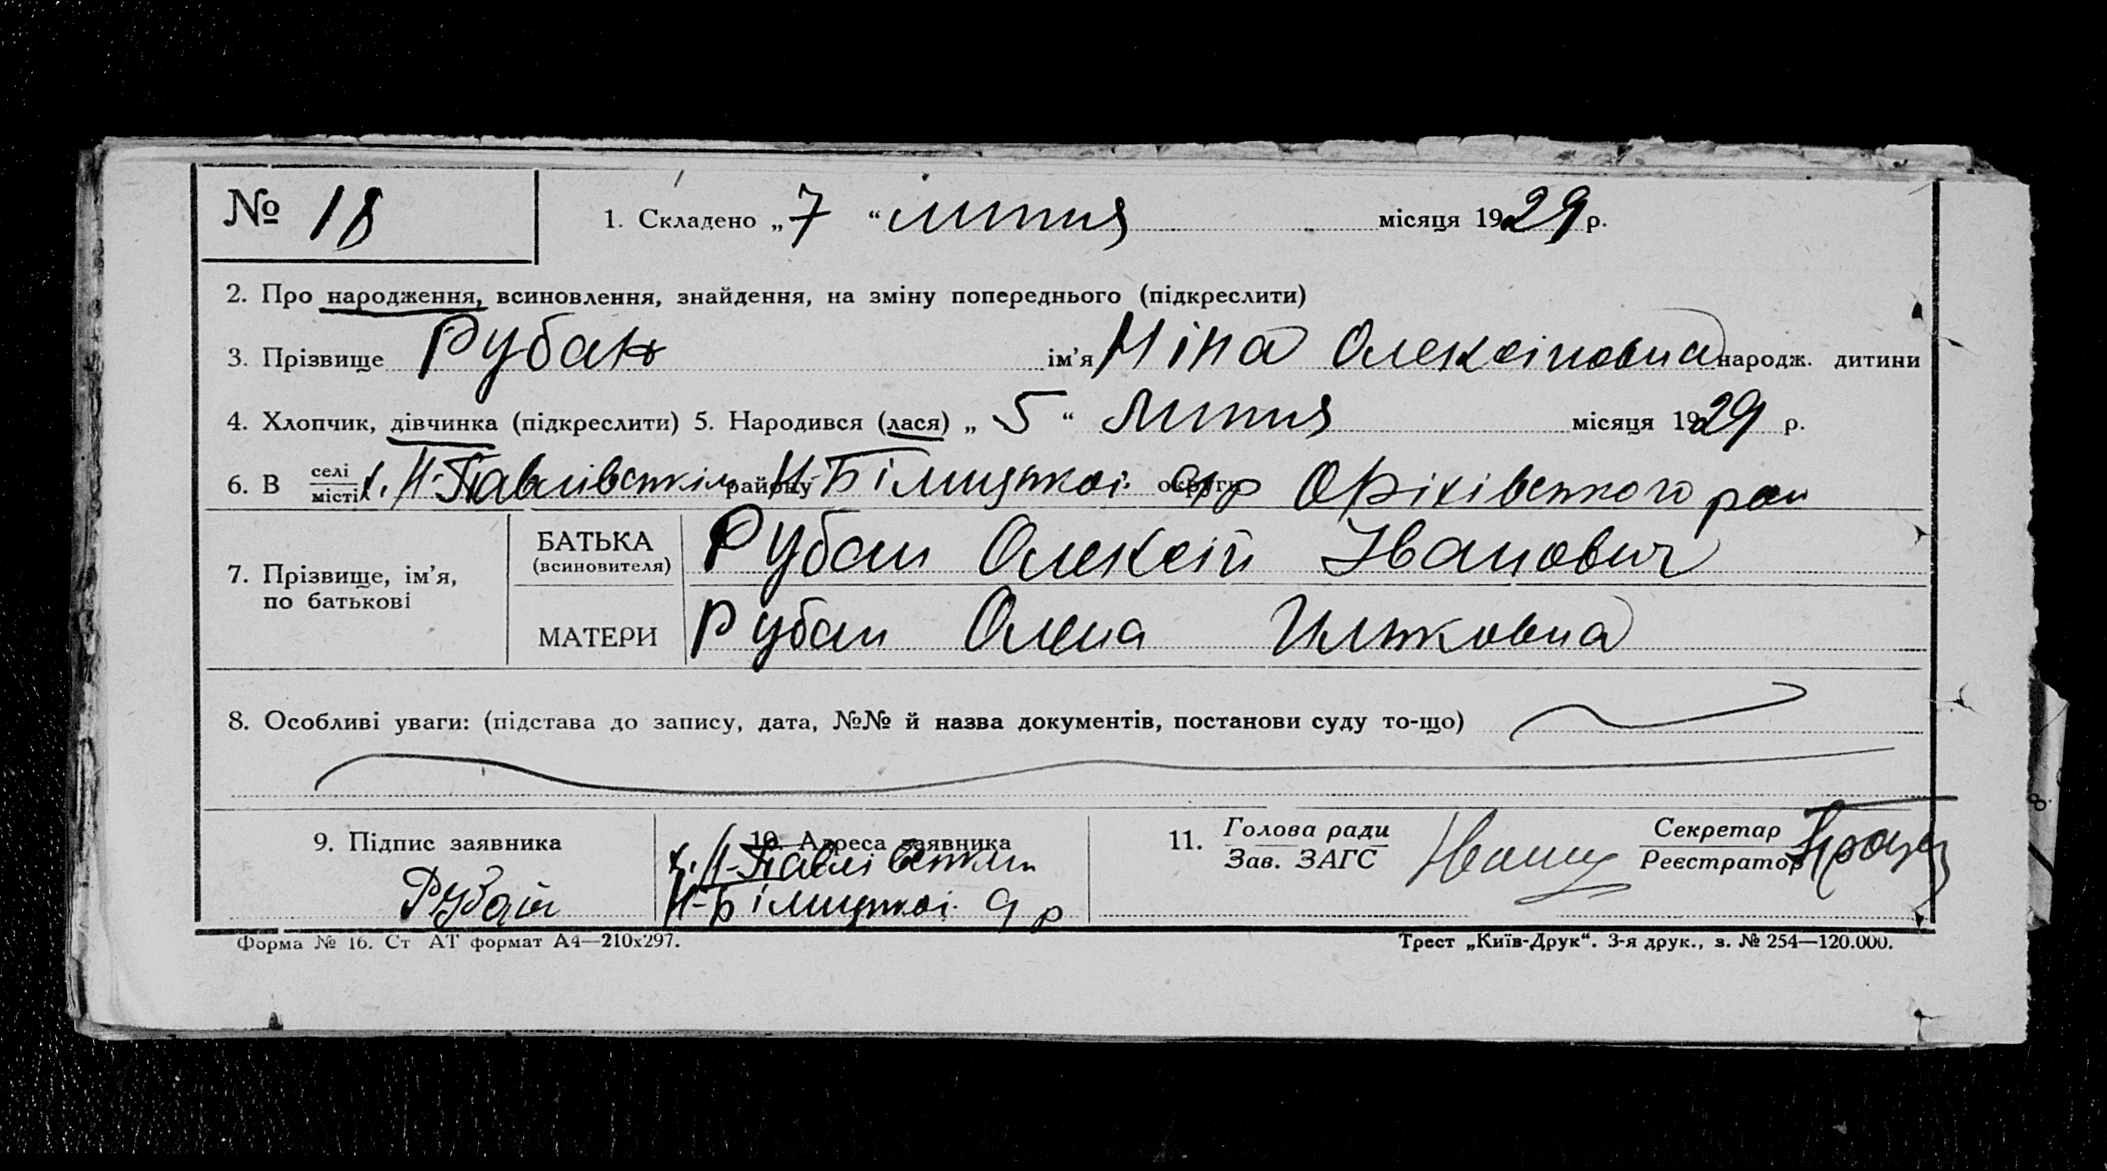 № 18
1. Складено „7“ липня місяця 1929 р.
2. Про народження, всиновлення, знайдення, на зміну попереднього (підкреслити)
3. Прізвище Рубан ім’я Ніна Олексіївна народж. дитини
4. Хлопчик, дівчинка (підкреслити) 5. Народився (лася) „5“ липня місяця 1929 р.
6. В селі місті с. Н-Павлівськім району Н-Білицької округи с/р Оріхівського рай
7. Прізвище, ім’я, по батькові
БАТЬКА (всиновителя) Рубан Олексій Іванович
МАТЕРИ Рубан Олена Ильковна
8. Особливі уваги: (підстава до запису, дата, №№ й назва документів, постанови суду то-що)
9. Підпис заявника
Рубан
10. Адреса заявника
с. Н-Павлівським
Н-Білицької с р
11. Голова ради Зав. ЗАГС
Секретар Реєстратор
Форма № 16. Ст АТ формат А4—210х297.
Трест „Київ-Друк“. 3-я друк., з. № 254—120.000.